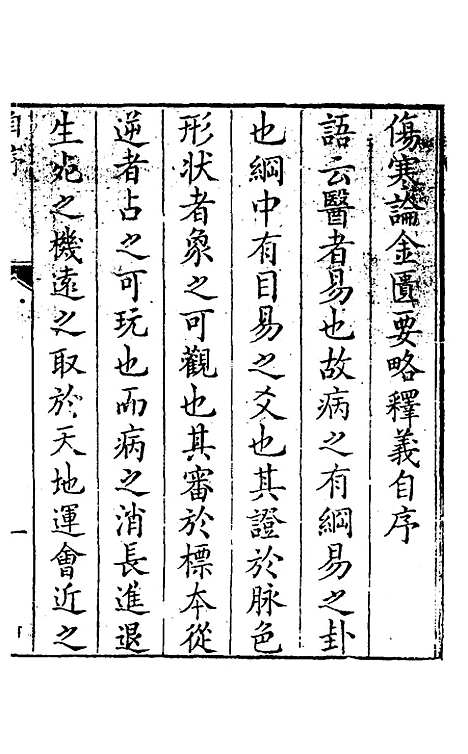 傷寒論金匱要略釋義自序
語云醫者易也故病之有綱易之卦
也綱中有目易之爻也其證於脉色
形状者象之可觀也其審於標本從
逆者占之可玩也而病之消長進退
生死之機遠之取於天地運會近之
自序
一